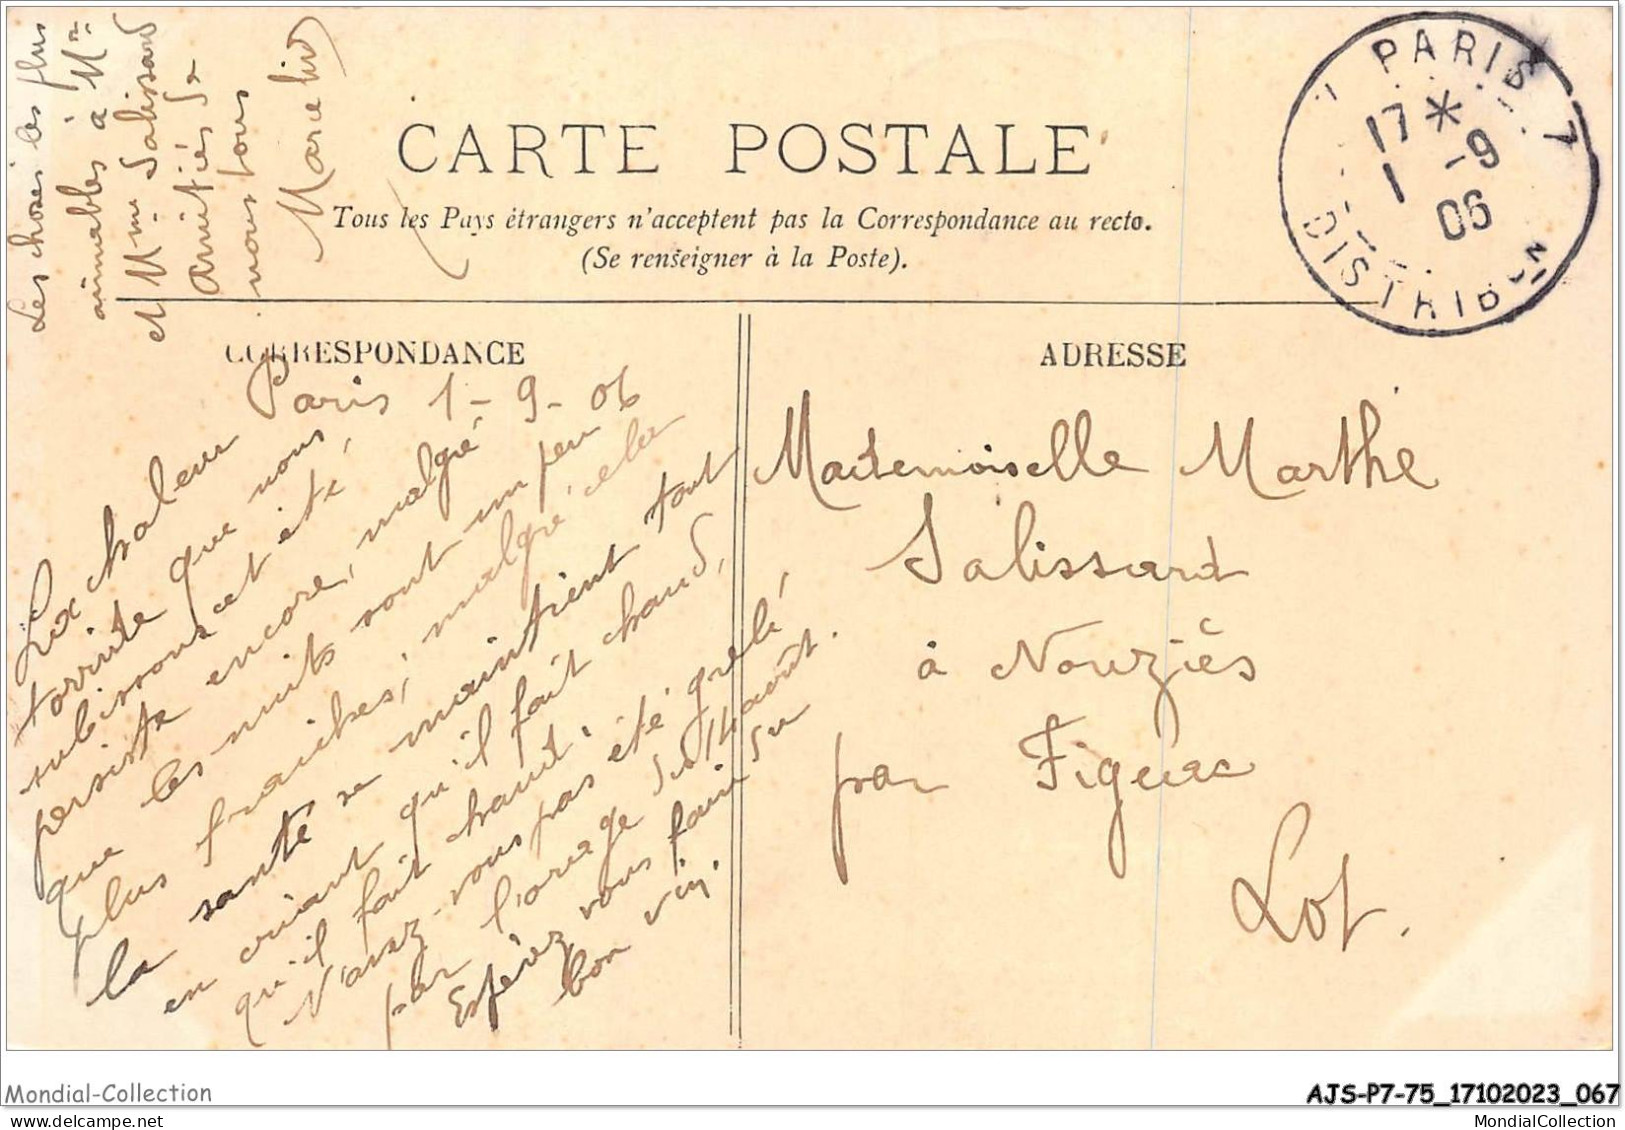 CARTE POSTALE
Tous les Pays étrangers n'acceptent pas la Correspondance au recto.
(Se renseigner à la Poste).
PARIS 7
17 *
1 -9
06
DISTRIBON
CORRESPONDANCE
Paris 1-9-06
La chaleur
torride que nous
subissons cet été,
persiste encore, malgré
que les nuits sont un peu
plus fraiches; malgré cela
la santé se maintient tout
en criant qu'il fait chaud,
qu'il fait chaud.
N'avez-vous pas été grêlé
par l'orage du 14 août.
Espérez vous faire du
bon vin.
Les choses les plus
aimables à Mr
et Mme Salissard
Amitiés de
nous tous
ADRESSE
Mademoiselle Marthe
Salissard
à Nouziès
par Figeac
Lot.
Mondial-Collection
AJS-P7-75_17102023_067
MondialCollection